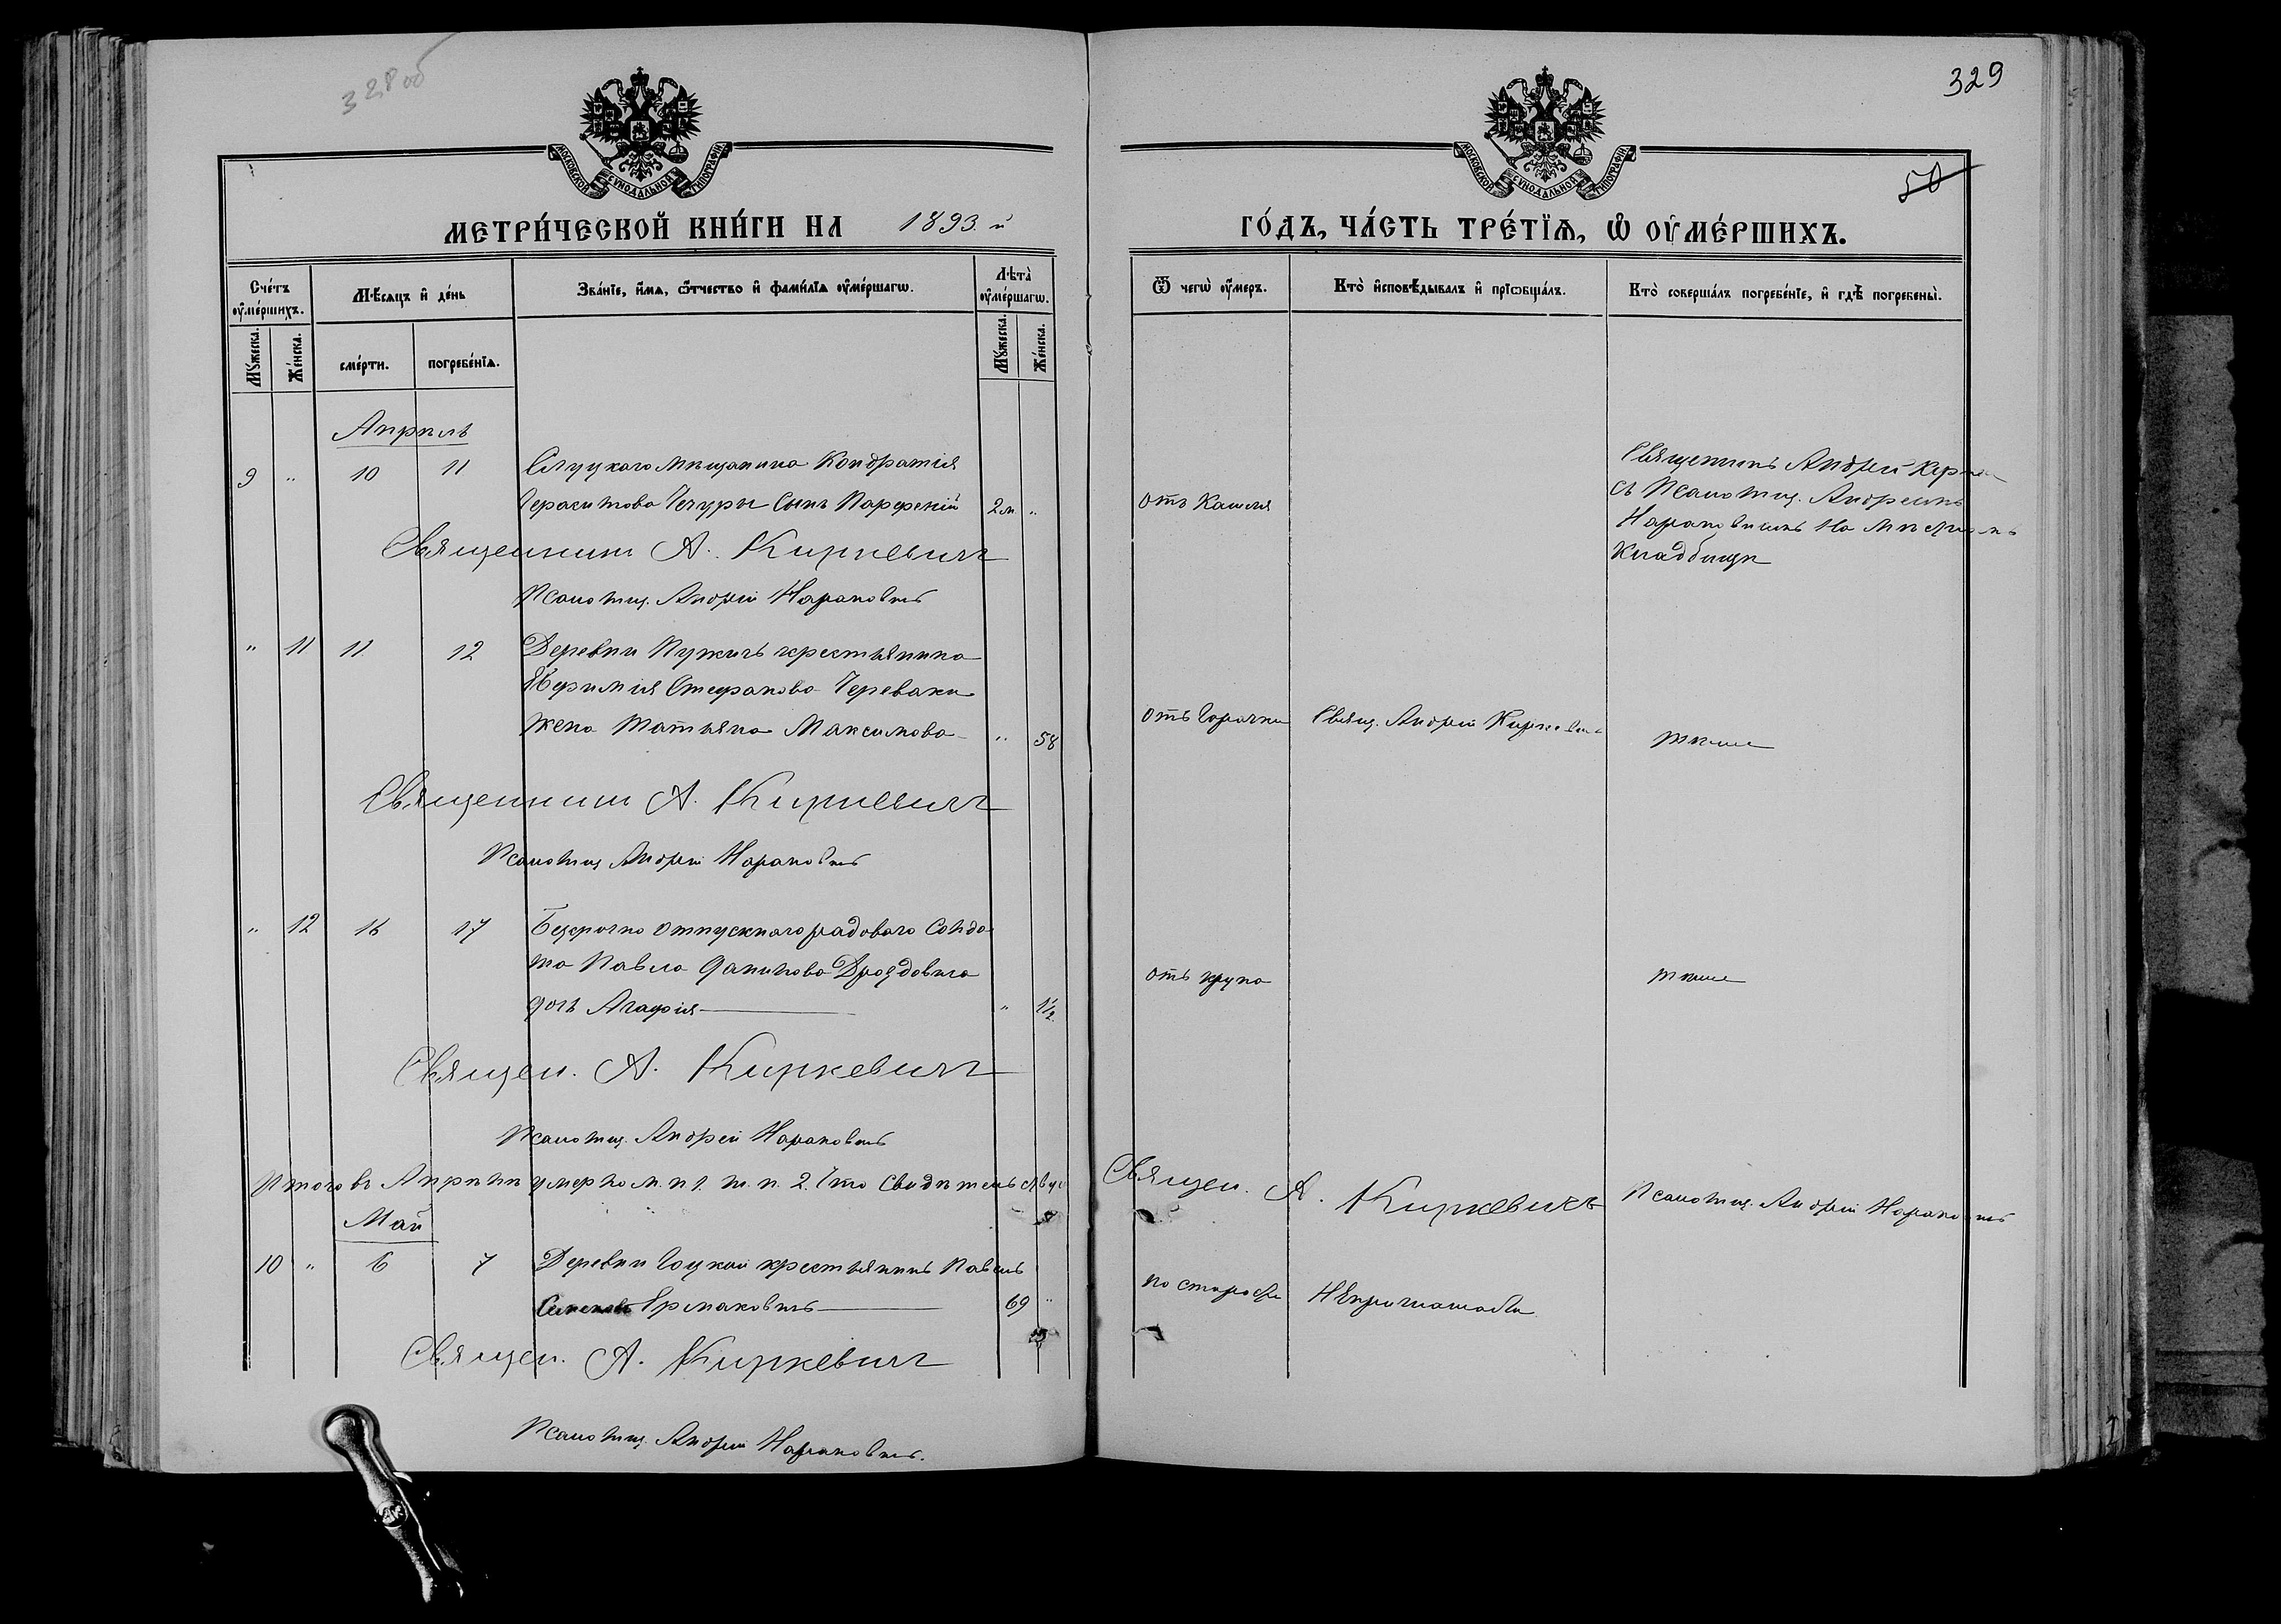 328об
329
50
МОСКОВСКОЙ СѴНОДАЛЬНОЙ ТИПОГРАФІИ
МОСКОВСКОЙ СѴНОДАЛЬНОЙ ТИПОГРАФІИ
МЕТРИ́ЧЕСКОЙ КНИ́ГИ НА 1893.й
ГО́ДЪ, ЧА́СТЬ ТРЕ́ТЇѦ, Ѡ ОУ҆МЕ́РШИХЪ.
Сче́тъ оу҆ме́ршихъ.
Мꙋ́жеска.
Же́нска.
Мѣ́сѧцъ и҆ де́нь
сме́рти.
погребе́нїѧ.
Зва́нїе, и҆́мѧ, ѻ҆́тчество и҆ фами́лїѧ оу҆ме́ршагѡ.
Лѣ́та оу҆ме́ршагѡ.
Мꙋ́жеска.
Же́нска.
Ѿ чегѡ̀ оу҆́меръ.
Кто̀ и҆сповѣ́дывалъ и҆ прїѡбща́лъ.
Кто̀ соверша́лъ погребе́нїе, и҆ гдѣ̀ погребены̀.
Апрѣль
9 " 10 11 Слуцкаго мѣщанина Кондратія
Герасимова Чечуры сынъ Парфеній 2м "
отъ кашля
Священникъ Андрей
съ Псаломщ. Андреемъ
Нарановичемъ на мѣстномъ
кладбищѣ
Священникъ А. Киркевичъ
Псаломщ. Андрей Нарановичъ
" 11 11 12 Деревни Пужичъ крестьянина
Ефимія Стефанова Черевака
жена Татьяна Максимова " 58
отъ горячки
Свящ. Андрей Киркевичъ
тѣже
Священникъ А. Киркевичъ
Псаломщ Андрей Нарановичъ
" 12 16 17 Безсрочно отпускного рядового солда
та Павла Данилова Дроздовича
дочь Агафія " 1 1/2
отъ крупа
тѣже
Священ. А. Киркевичъ
Псаломщ. Андрей Нарановичъ
Итого въ Апрѣлѣ умерло м. п 1. ж. п. 2. Что свидѣтельству
Священ. А. Киркевичъ Псаломщ. Андрей Нарановичъ
Май
10 " 6 7 Деревни Гоцкой крестьянинъ Павелъ
Ермаковичъ 69 "
по старости
Священ. А. Киркевичъ
Псаломщ. Андрей Нарановичъ.